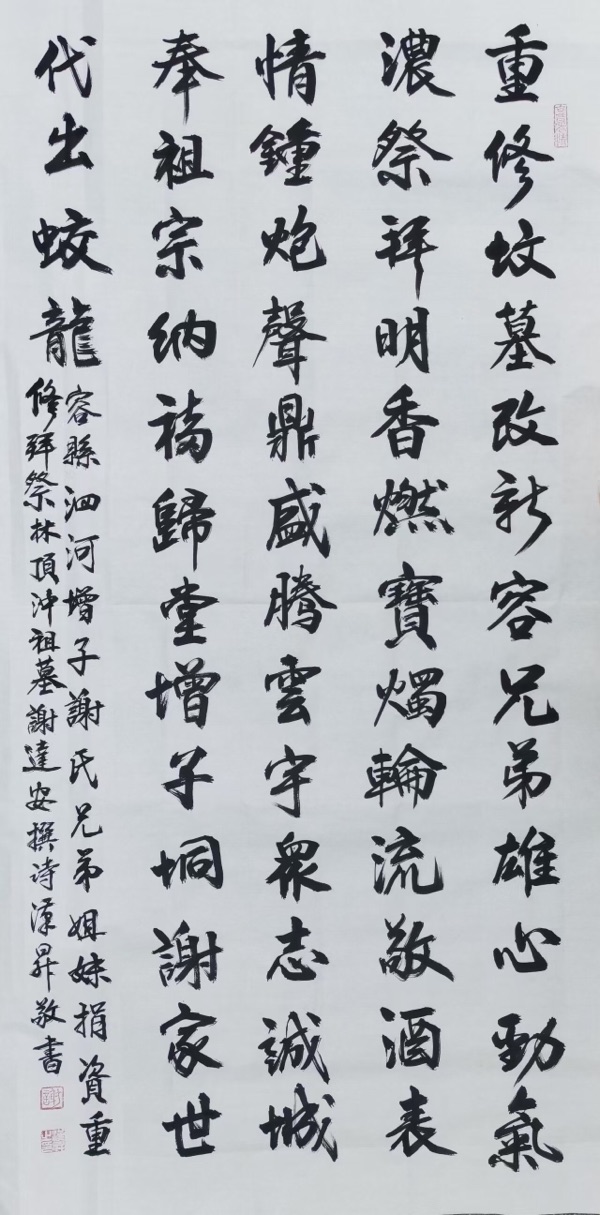 重修坟墓改新容兄弟雄心勁氣
濃祭拜明香燃寶燭輪流敬酒表
情鍾炮聲鼎盛騰雲宇眾志誠城
奉祖宗納福歸堂增子垌謝家世
代出蛟龍
容縣泗河增子謝氏兄弟姐妹捐資重
修拜祭林頂沖祖墓謝達安撰诗漢昇敬書